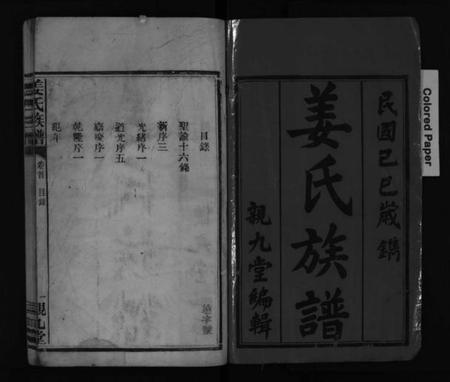 民國己巳歲鐫
姜氏族譜
親九堂編輯
Colored Paper
目錄
聖諭十六錄
新序三
光緒序一
道光序五
嘉慶序一
乾隆序一
姜氏族譜
卷首
目錄
親九堂